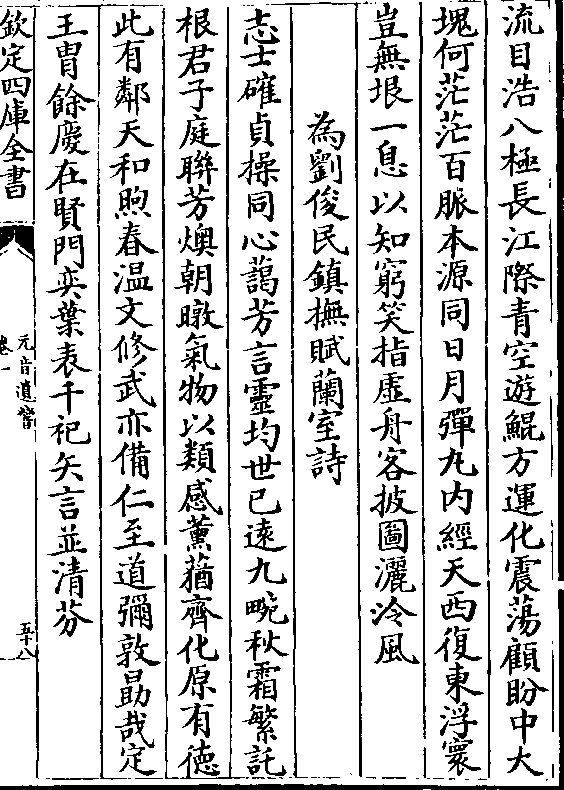 流目浩八極長江際青空遊鯤方運化震蕩顧盼中大
塊何茫茫百脈本源同日月彈丸内經天西復東浮寰
豈無垠一息以知窮笑指虛舟客披圖灑泠風
為劉俊民鎮撫賦蘭室詩
志士確貞操同心藹芳言靈均世已遠九畹秋霜繁託
根君子庭聯芳燠朝暾氣物以類感薰蕕齊化原有德
此有鄰天和煦春温文修武亦備仁至道彌敦勗哉定
王胄餘慶在賢門奕葉表千祀矢言並清芬
欽定四庫全書
元音遺響
卷一
五十八